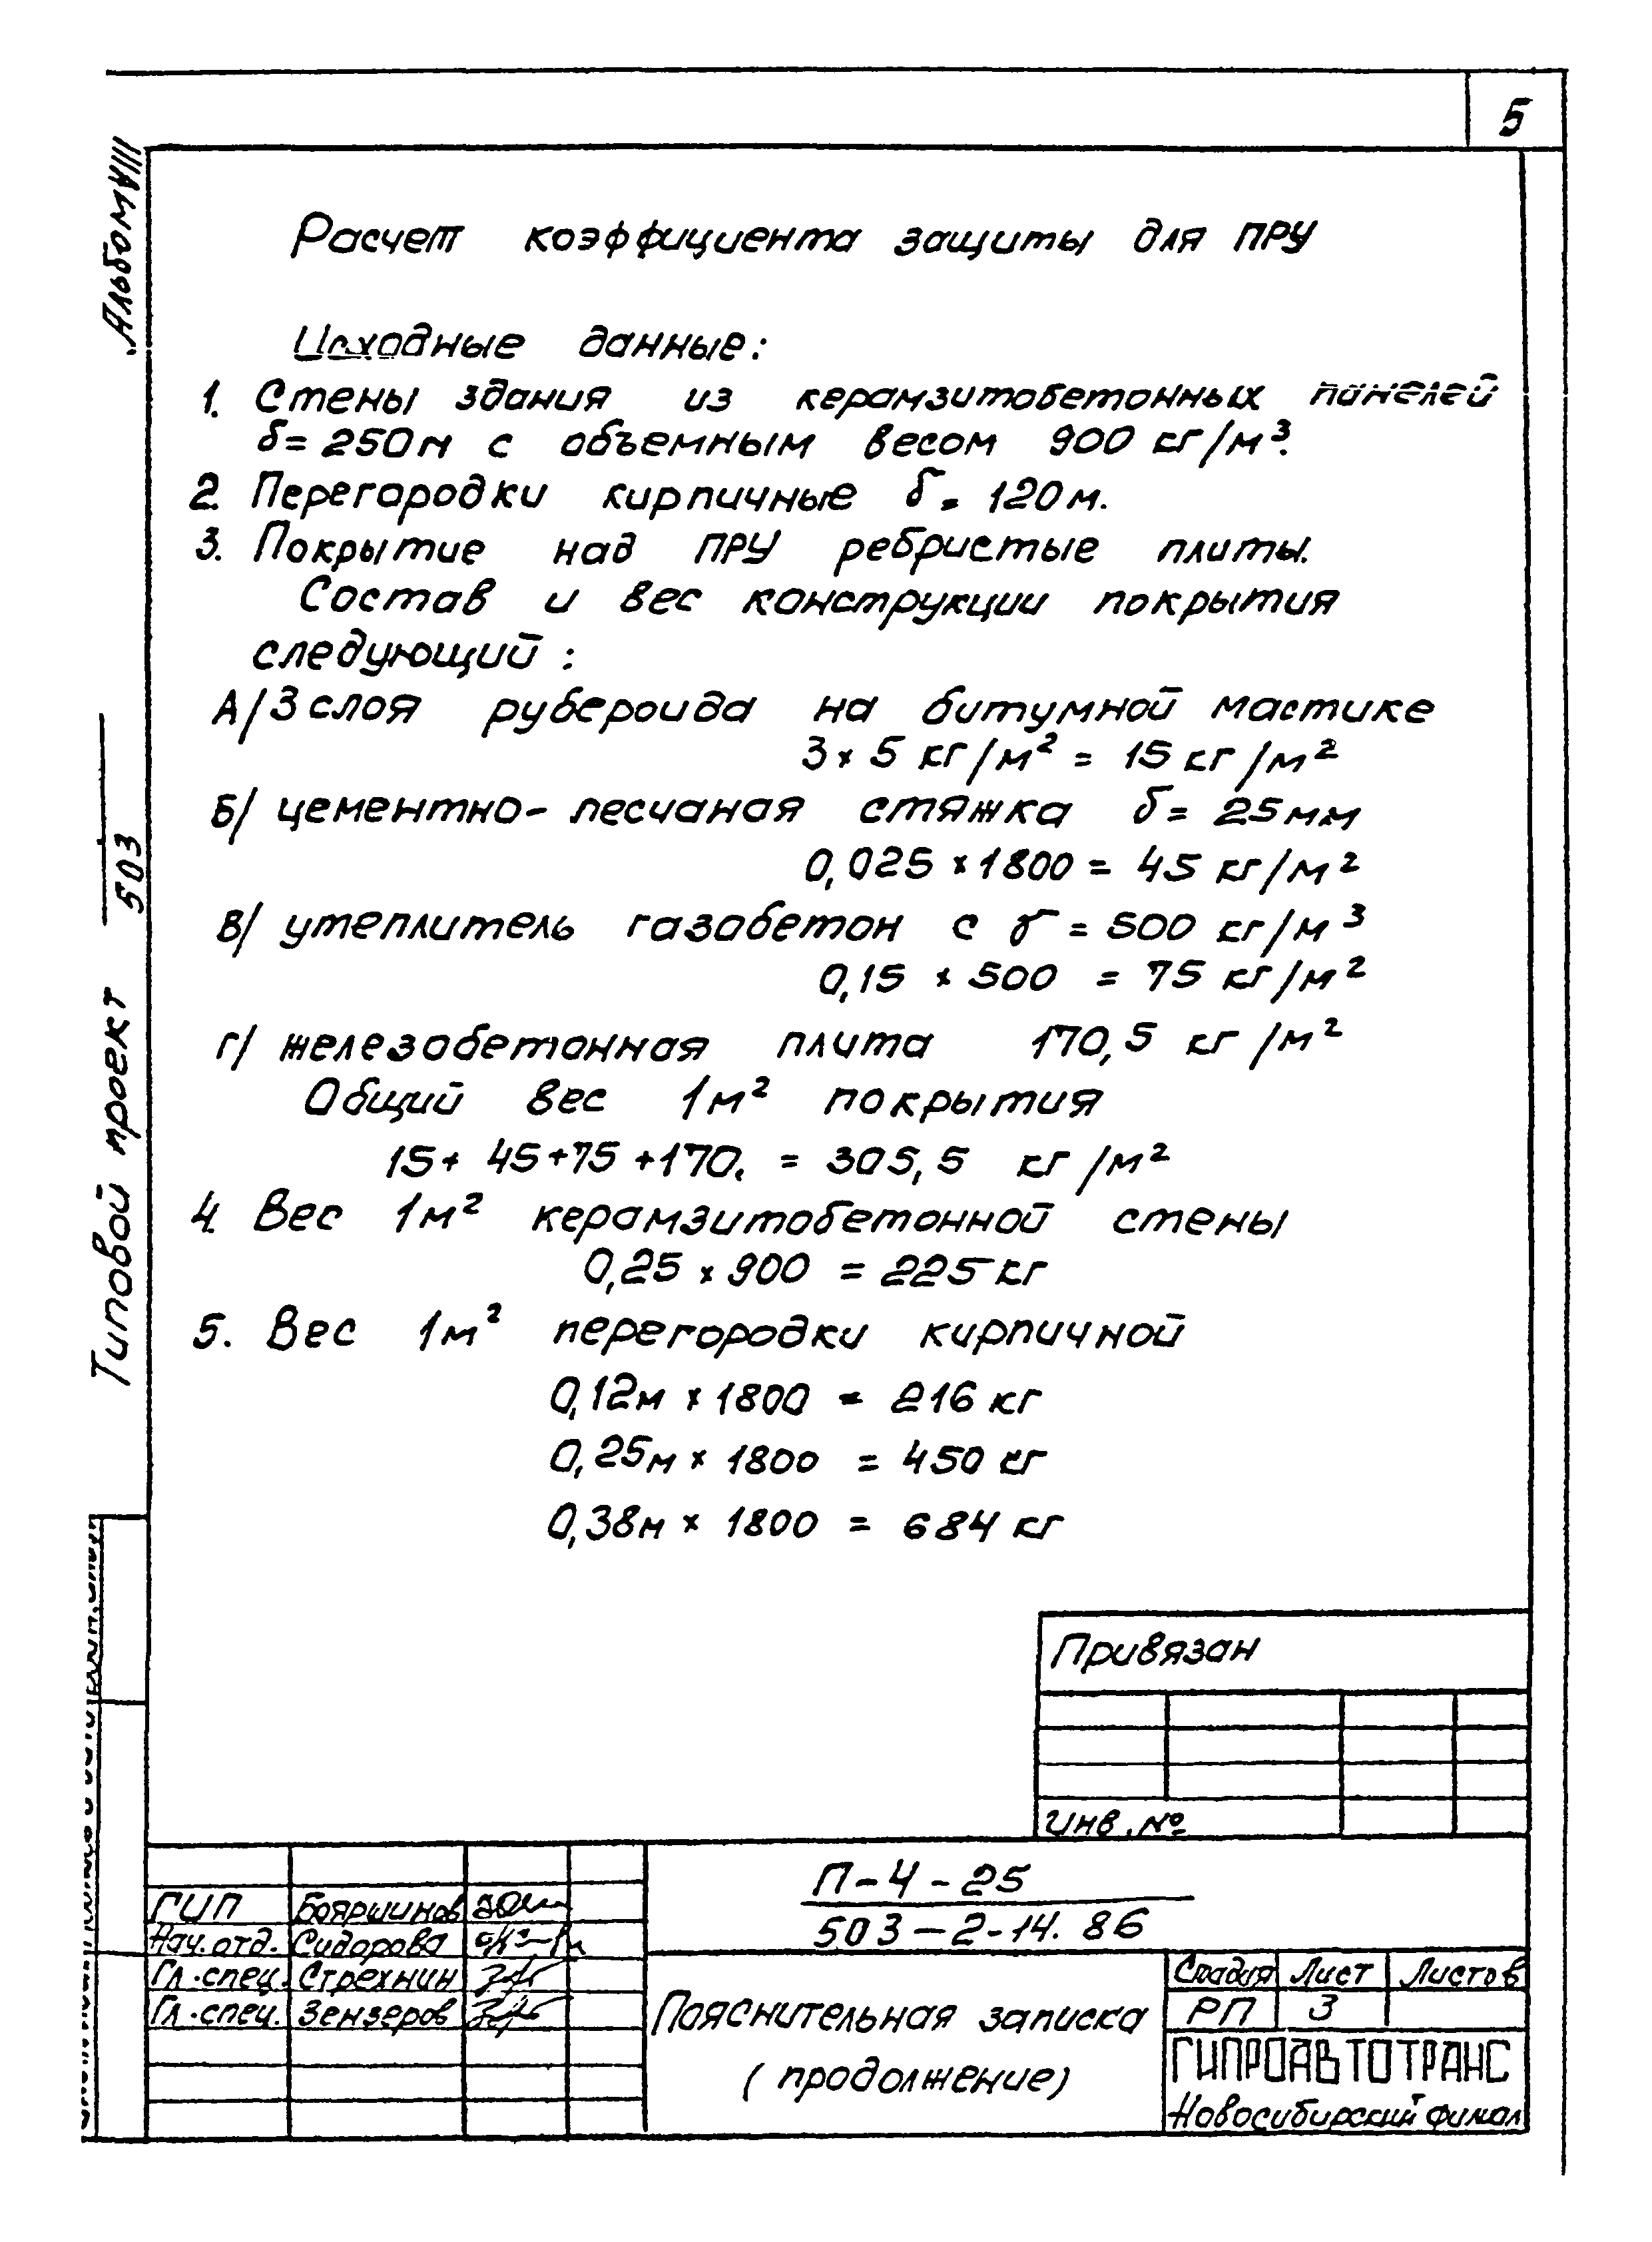 5
Альбом VIII
Расчет коэффициента защиты для ПРУ
Исходные данные:
1. Стены здания из керамзитобетонных панелей
δ= 250м с объемным весом 900 кг/м³.
2. Перегородки кирпичные δ = 120м.
3. Покрытие над ПРУ ребристые плиты.
Состав и вес конструкции покрытия
следующий :
А/ 3 слоя рубероида на битумной мастике
3 × 5 кг/м² = 15 кг/м²
Б/ цементно- песчаная стяжка δ= 25мм
0,025 × 1800 = 45 кг/м²
В/ утеплитель газобетон с γ = 500 кг/м³
0,15 × 500 = 75 кг/м²
Г/ железобетонная плита 170,5 кг/м²
Общий вес 1м² покрытия
15+ 45+75 +170, = 305,5 кг/м²
4. Вес 1м² керамзитобетонной стены
0,25 × 900 = 225 кг
5. Вес 1м² перегородки кирпичной
0,12м × 1800 = 216 кг
0,25м × 1800 = 450 кг
0,38м × 1800 = 684 кг
Типовой проект 503
Привязан
Инв. №
П-4-25
503-2-14. 86
ГИП Бояршинов
Нач. отд. Сидорова
Гл. спец. Стрехнин
Гл. спец. Зензеров
Пояснительная записка
(продолжение)
Стадия Лист Листов
РП 3
ГИПРОАВТОТРАНС
Новосибирский филиал